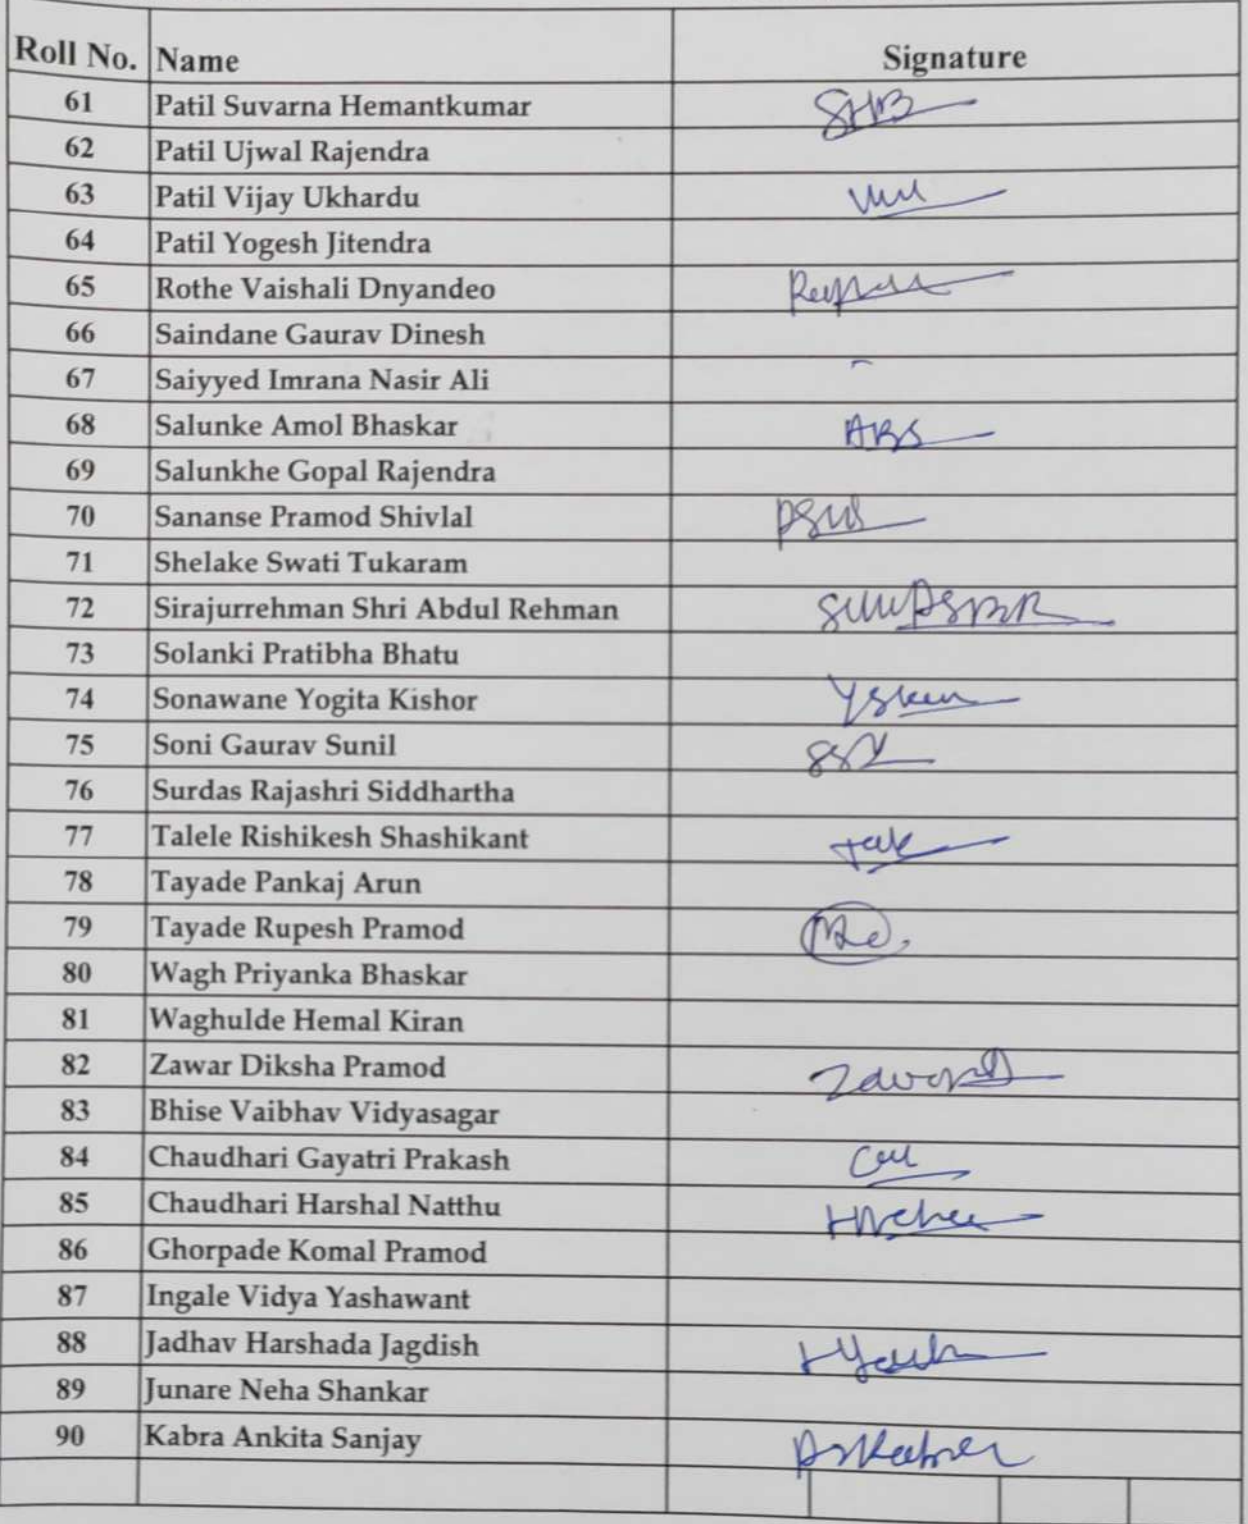 Roll No. Name Signature
61 Patil Suvarna Hemantkumar SHB
62 Patil Ujwal Rajendra
63 Patil Vijay Ukhardu
64 Patil Yogesh Jitendra
65 Rothe Vaishali Dnyandeo
66 Saindane Gaurav Dinesh
67 Saiyyed Imrana Nasir Ali
68 Salunke Amol Bhaskar ABS
69 Salunkhe Gopal Rajendra
70 Sananse Pramod Shivlal
71 Shelake Swati Tukaram
72 Sirajurrehman Shri Abdul Rehman
73 Solanki Pratibha Bhatu
74 Sonawane Yogita Kishor
75 Soni Gaurav Sunil
76 Surdas Rajashri Siddhartha
77 Talele Rishikesh Shashikant
78 Tayade Pankaj Arun
79 Tayade Rupesh Pramod
80 Wagh Priyanka Bhaskar
81 Waghulde Hemal Kiran
82 Zawar Diksha Pramod
83 Bhise Vaibhav Vidyasagar
84 Chaudhari Gayatri Prakash
85 Chaudhari Harshal Natthu
86 Ghorpade Komal Pramod
87 Ingale Vidya Yashawant
88 Jadhav Harshada Jagdish
89 Junare Neha Shankar
90 Kabra Ankita Sanjay